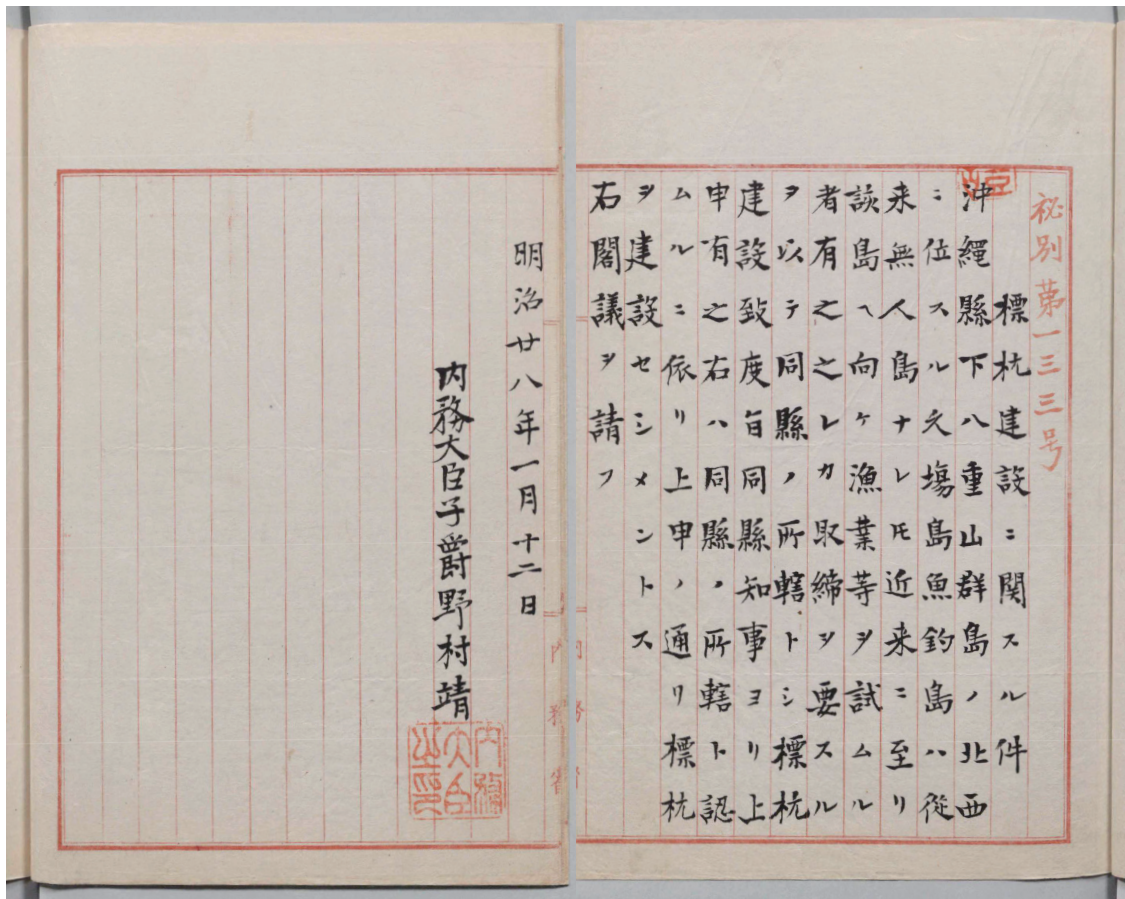 秘別第一三三号
標杭建設ニ関スル件
沖縄縣下八重山群島ノ北西
ニ位スル久場島魚釣島ハ従
来無人島ナレ𪜈近来ニ至リ
該島ヘ向ケ漁業等ヲ試ムル
者有之之レカ取締ヲ要スル
ヲ以テ同縣ノ所轄トシ標杭
建設致度旨同縣知事ヨリ上
申有之右ハ同縣ノ所轄ト認
ムルニ依リ上申ノ通リ標杭
ヲ建設セシメントス
右閣議ヲ請フ
明治廿八年一月十二日
内務大臣子爵野村靖
内務大臣之印
内務省